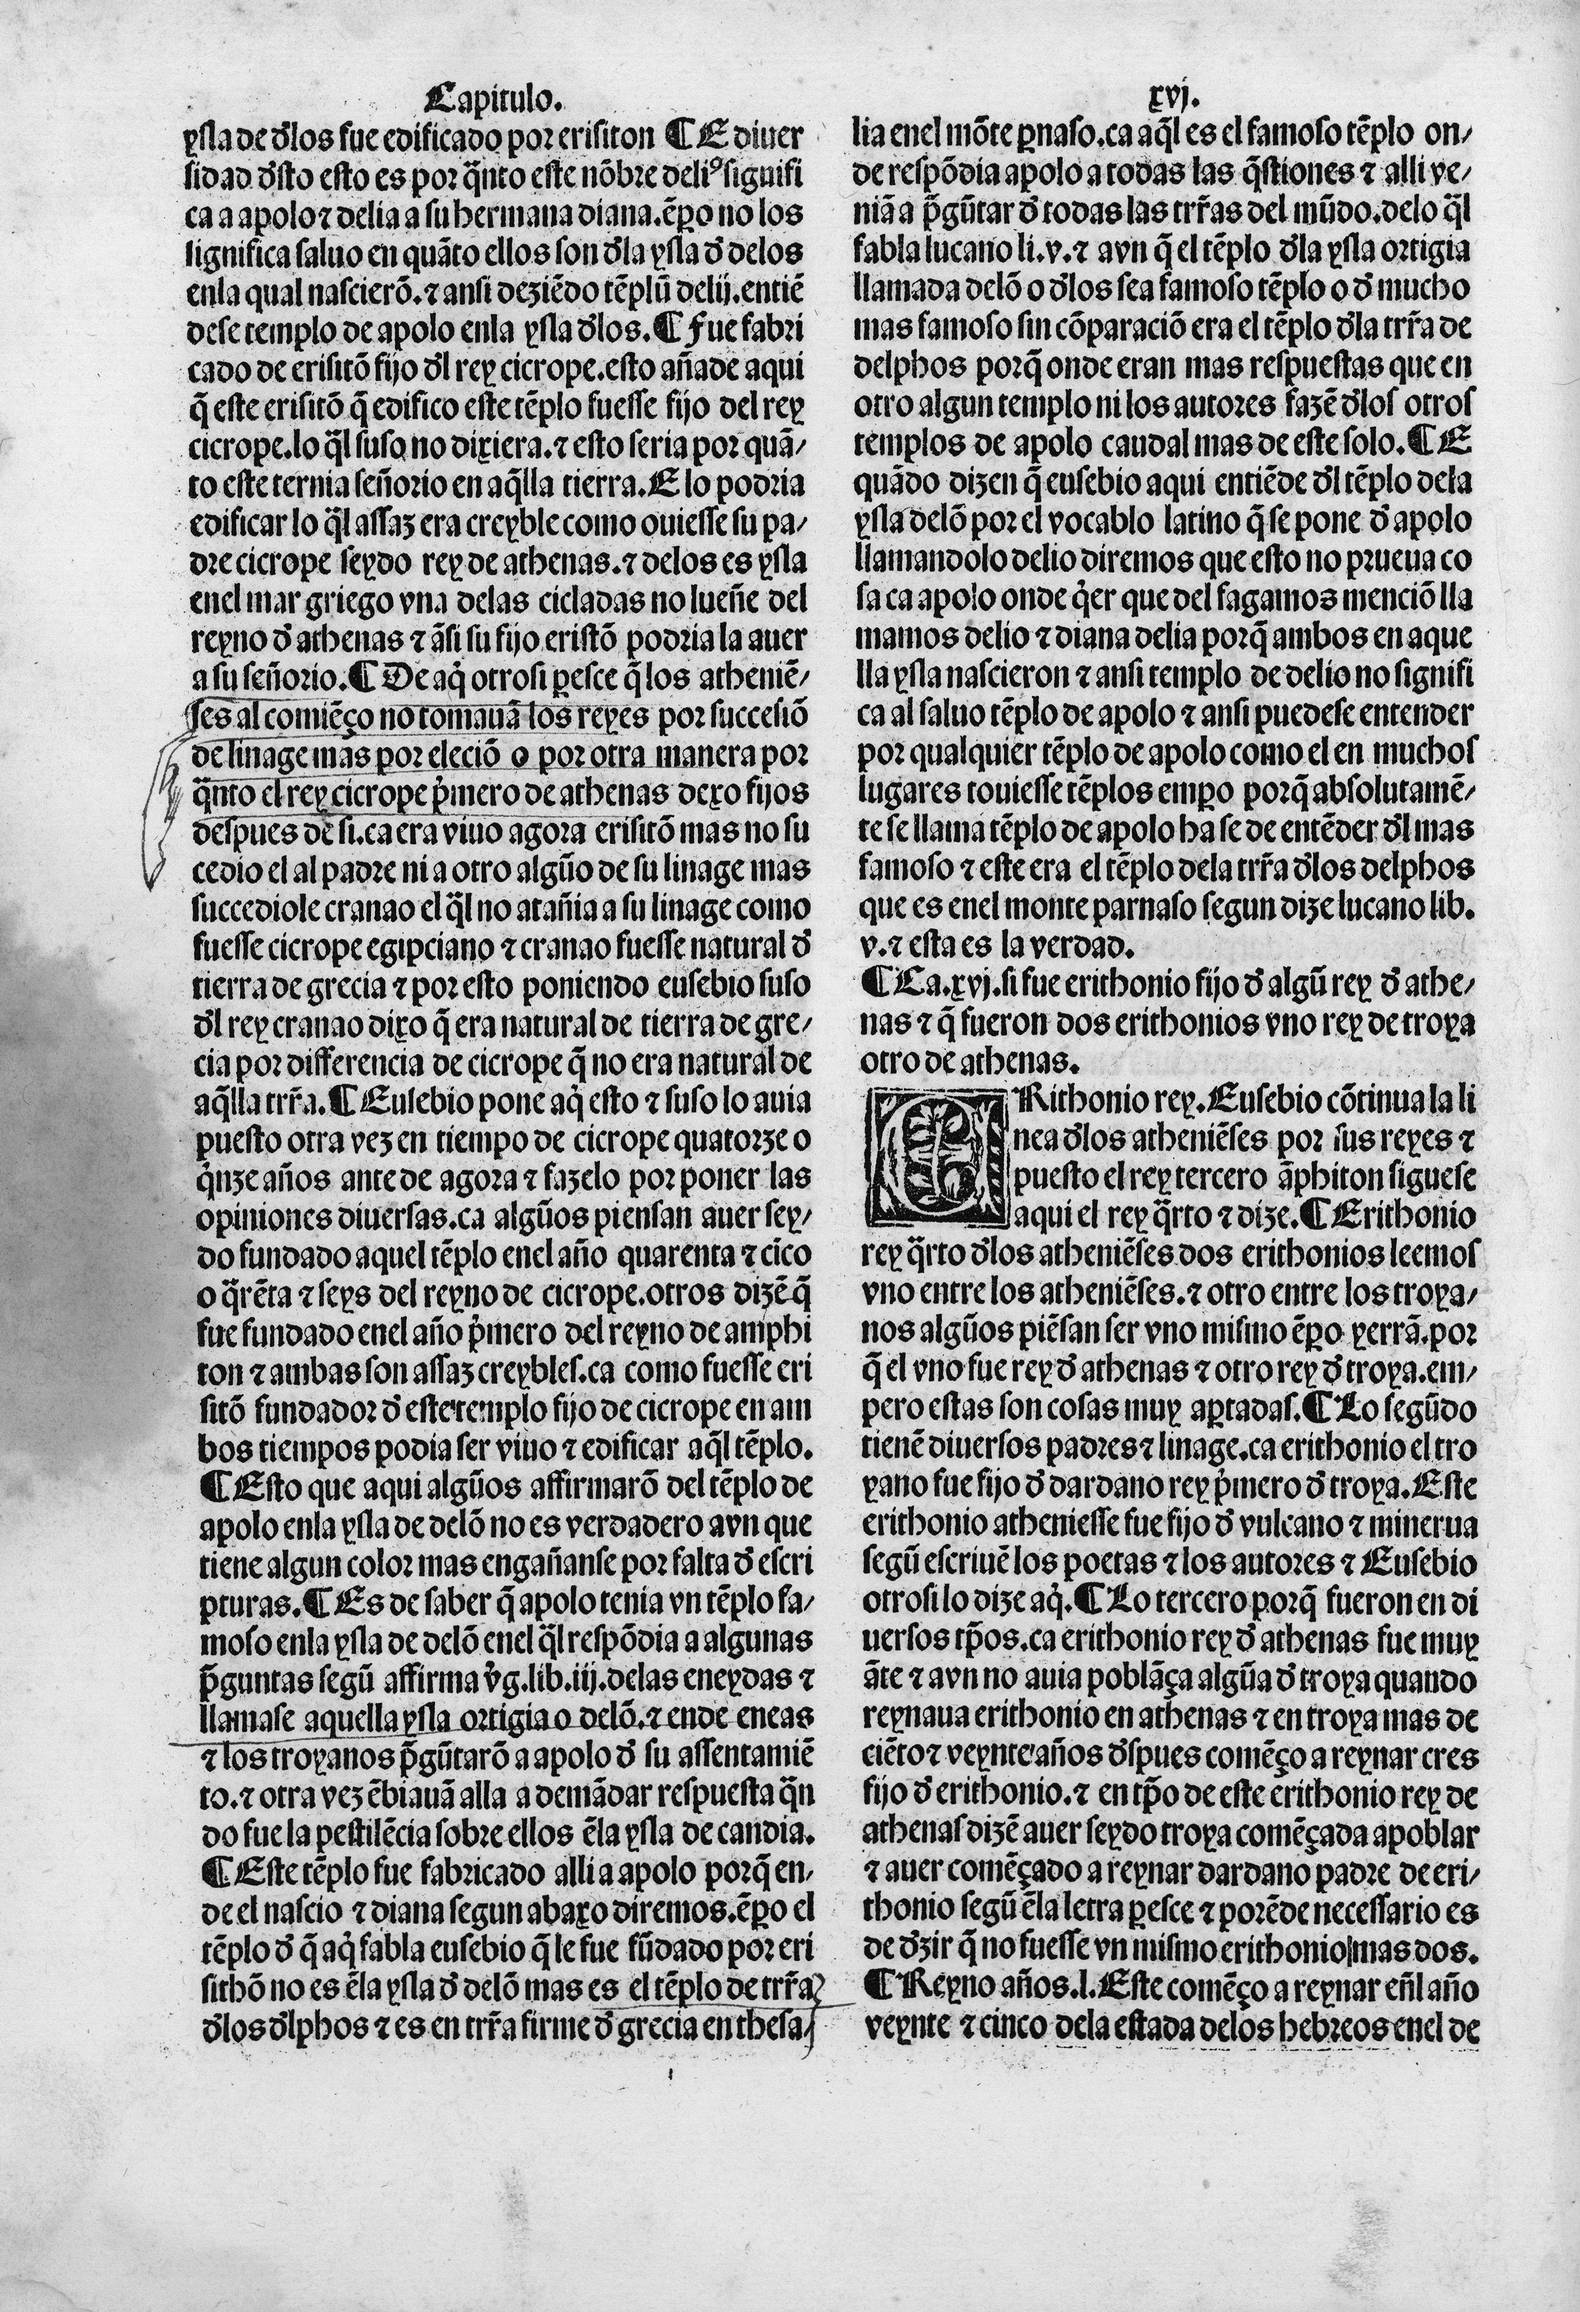 Capitulo.
ysla de d̄los fue edificado por erisiton ¶ E diuer
sidad d̄sto esto es por q̄nto este nõbre deliꝰ signifi
ca a apolo ⁊ delia a su hermana diana. ẽꝑo no los
significa saluo en quãto ellos son d̄la ysla d̄ delos
enla qual nascierõ. ⁊ ansi deziẽdo tẽplũ delij. entiẽ
dese templo de apolo enla ysla d̄los. ¶ Fue fabri
cado de erisitõ fijo d̄l rey cicrope. esto añade aqui
q̃ este erisitõ q̃ edifico este tẽplo fuesse fijo del rey
cicrope. lo q̃l suso no dixiera. ⁊ esto seria por quã/
to este ternia señorio en aq̃lla tierra. E lo podria
edificar lo q̃l assaz era creyble como ouiesse su pa/
dre cicrope seydo rey de athenas. ⁊ delos es ysla
enel mar griego vna delas cicladas no lueñe del
reyno d̄ athenas ⁊ ãsi su fijo eristõ podria la auer
a su señorio. ¶ De aq̇ otrosi ꝑesce q̃ los atheniẽ/
ses al comiẽço no tomauã los reyes por succesiõ
de linage mas por eleciõ o por otra manera por
q̄nto el rey cicrope ṗmero de athenas dexo fijos
despues de si. ca era viuo agora erisitõ mas no su
cedio el al padre ni a otro algũo de su linage mas
succediole cranao el q̃l no atañia a su linage como
fuesse cicrope egipciano ⁊ cranao fuesse natural d̄
tierra de grecia ⁊ por esto poniendo eusebio suso
d̄l rey cranao dixo q̃ era natural de tierra de gre/
cia por differencia de cicrope q̃ no era natural de
aq̃lla trr̃a. ¶ Eusebio pone aq̇ esto ⁊ suso lo auia
puesto otra vez en tiempo de cicrope quatorze o
q̇nze años ante de agora ⁊ fazelo por poner las
opiniones diuersas. ca algũos piensan auer sey/
do fundado aquel tẽplo enel año quarenta ⁊ cĩco
o q̃rẽta ⁊ seys del reyno de cicrope. otros dizẽ q̃
fue fundado enel año ṗmero del reyno de amphi
ton ⁊ ambas son assaz creybles. ca como fuesse eri
sitõ fundador d̄ este templo fijo de cicrope en am
bos tiempos podia ser viuo ⁊ edificar aq̃l tẽplo.
¶ Esto que aqui algũos affirmarõ del tẽplo de
apolo enla ysla de delõ no es verdadero avn que
tiene algun color mas engañanse por falta d̄ escri
pturas. ¶ Es de saber q̃ apolo tenia vn tẽplo fa/
moso enla ysla de delõ enel q̃l respõdia a algunas
p̃guntas segũ affirma v̇g. lib. iij. delas eneydas ⁊
llamase aquella ysla ortigia o delõ. ⁊ ende eneas
⁊ los troyanos p̃gũtarõ a apolo d̄ su assentamiẽ
to. ⁊ otra vez ẽbiauã alla a demãdar respuesta q̄n
do fue la pestilẽcia sobre ellos ẽla ysla de candia.
¶ Este tẽplo fue fabricado alli a apolo porq̃ en/
de el nascio ⁊ diana segun abaxo diremos. ẽꝑo el
tẽplo d̄ q̃ aq̇ fabla eusebio q̃ le fue fũdado por eri
sithõ no es ẽla ysla d̄ delõ mas es el tẽplo de trr̃a
d̄los d̄lphos ⁊ es en trr̃a firme d̄ grecia en thesa/
xvj.
lia enel mõte ꝑnaso. ca aq̃l es el famoso tẽplo on/
de respõdia apolo a todas las q̃stiones ⁊ alli ve/
niã a p̃gũtar d̄ todas las trr̃as del mũdo. delo q̃l
fabla lucano li. v. ⁊ avn q̃ el tẽplo d̄la ysla ortigia
llamada delõ o d̄los sea famoso tẽplo o d̄ mucho
mas famoso sin cõparaciõ era el tẽplo d̄la trr̃a de
delphos porq̃ onde eran mas respuestas que en
otro algun templo ni los autores fazẽ d̄los otros
templos de apolo caudal mas de este solo. ¶ E
quãdo dizen q̃ eusebio aqui entiẽde d̄l tẽplo dela
ysla delõ por el vocablo latino q̃ se pone d̄ apolo
llamandolo delio diremos que esto no prueua co
sa ca apolo onde q̇er que del fagamos menciõ lla
mamos delio ⁊ diana delia porq̃ ambos en aque
lla ysla nascieron ⁊ ansi templo de delio no signifi
ca al saluo tẽplo de apolo ⁊ ansi puedese entender
por qualquier tẽplo de apolo como el en muchos
lugares touiesse tẽplos emꝑo porq̃ absolutamẽ/
te se llama tẽplo de apolo ha se de entẽder d̄l mas
famoso ⁊ este era el tẽplo dela trr̃a d̄los delphos
que es enel monte parnaso segun dize lucano lib.
v. ⁊ esta es la verdad.
¶ Ca. xvj. si fue erithonio fijo d̄ algũ rey d̄ athe/
nas ⁊ q̃ fueron dos erithonios vno rey de troya
otro de athenas.
ERithonio rey. Eusebio cõtinua la li
nea d̄los atheniẽses por sus reyes ⁊
puesto el rey tercero ãphiton siguese
aqui el rey q̃rto ⁊ dize. ¶ Erithonio
rey q̃rto d̄los atheniẽses dos erithonios leemos
vno entre los atheniẽses. ⁊ otro entre los troya/
nos algũos piẽsan ser vno mismo ẽꝑo yerrã. por
q̃ el vno fue rey d̄ athenas ⁊ otro rey d̄ troya. em/
pero estas son cosas muy aꝑtadas. ¶ Lo segũdo
tienẽ diuersos padres ⁊ linage. ca erithonio el tro
yano fue fijo d̄ dardano rey ṗmero d̄ troya. Este
erithonio atheniesse fue fijo d̄ vulcano ⁊ minerua
segũ escriuẽ los poetas ⁊ los autores ⁊ Eusebio
otrosi lo dize aq̇. ¶ Lo tercero porq̃ fueron en di
uersos tp̃os. ca erithonio rey d̄ athenas fue muy
ãte ⁊ avn no auia poblãça algũa d̄ troya quando
reynaua erithonio en athenas ⁊ en troya mas de
ciẽto ⁊ veynte años d̄spues comẽço a reynar cres
fijo d̄ erithonio. ⁊ en tp̃o de este erithonio rey de
athenas dizẽ auer seydo troya comẽçada a poblar
⁊ auer comẽçado a reynar dardano padre de eri/
thonio segũ ẽla letra ꝑesce ⁊ porẽde necessario es
de d̄zir q̃ no fuesse vn mismo erithonio mas dos.
¶ Reyno años. l. Este comẽço a reynar eñl año
veynte ⁊ cinco dela estada delos hebreos enel de